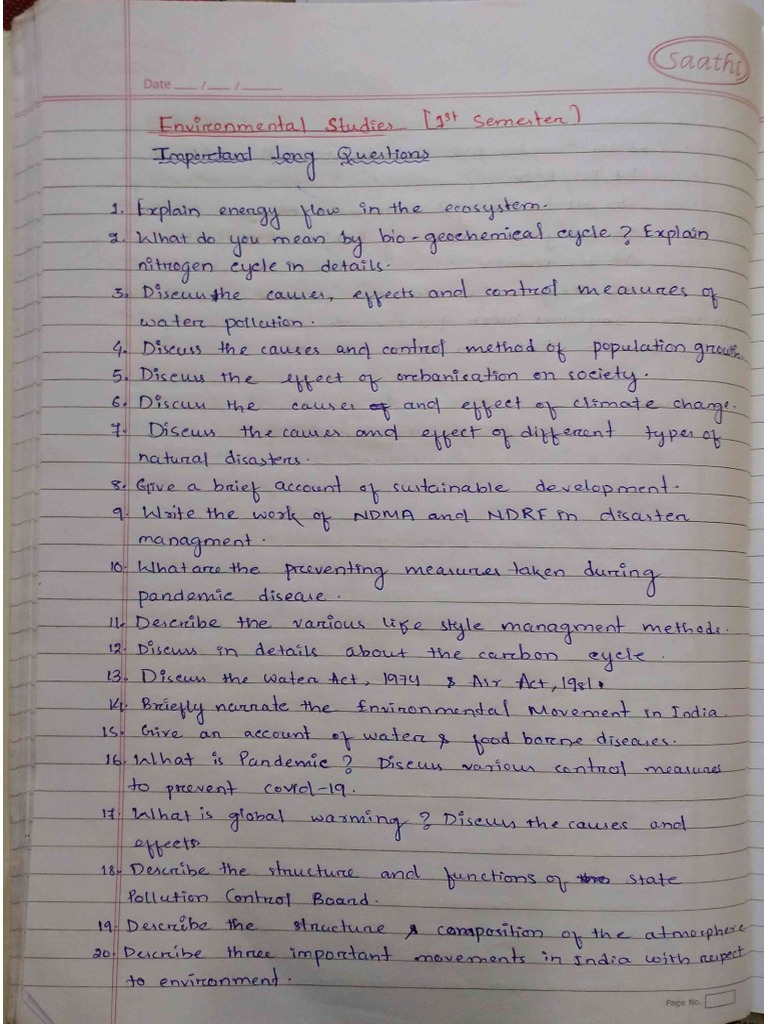 Saathi
Date __/__/____
Environmental Studies [1st Semester)
Imporetand long Questions
1. Explain energy flow in the ecosystem.
2. What do you mean by bio-geochemical cycle? Explain
nitrogen cycle in details.
3. Discuss the causes, effects and control measures of
water pollution.
4. Discuss the causes and control method of population growth.
5. Discuss the effect of orebanisation on society.
6. Discuss the causes and effect of climate change.
7. Discuss the causes and effect of different types of
natural disasters.
8. Give a brief account of sustainable development.
9. Write the work of NDMA and NDRF in disaster
managment.
10. What are the preventing measures taken during
pandemic disease.
11. Describe the various life style managment methods.
12. Discuss in details about the carbon cycle.
13. Discuss the Water Act, 1974 & Air Act, 1981.
14. Briefly narrate the Environmental Movement in India.
15. Give an account of water & food borne diseases.
16. What is Pandemic? Discuss various control measures
to prevent covid-19.
17. What is global warming? Discuss the causes and
effects.
18. Describe the structure and functions of state
Pollution Control Board.
19. Describe the structure & composition of the atmosphere
20. Describe three important movements in India with respect
to environment.
Page No.